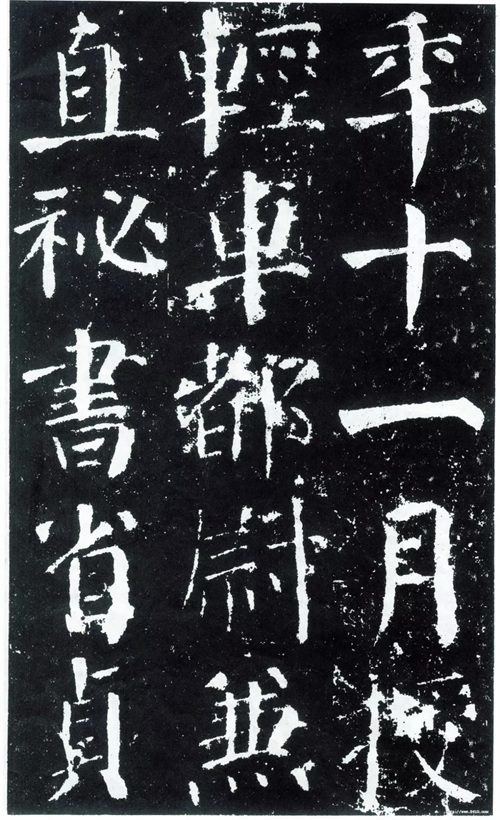 年十一月授
輕車都尉兼
直祕書省貞